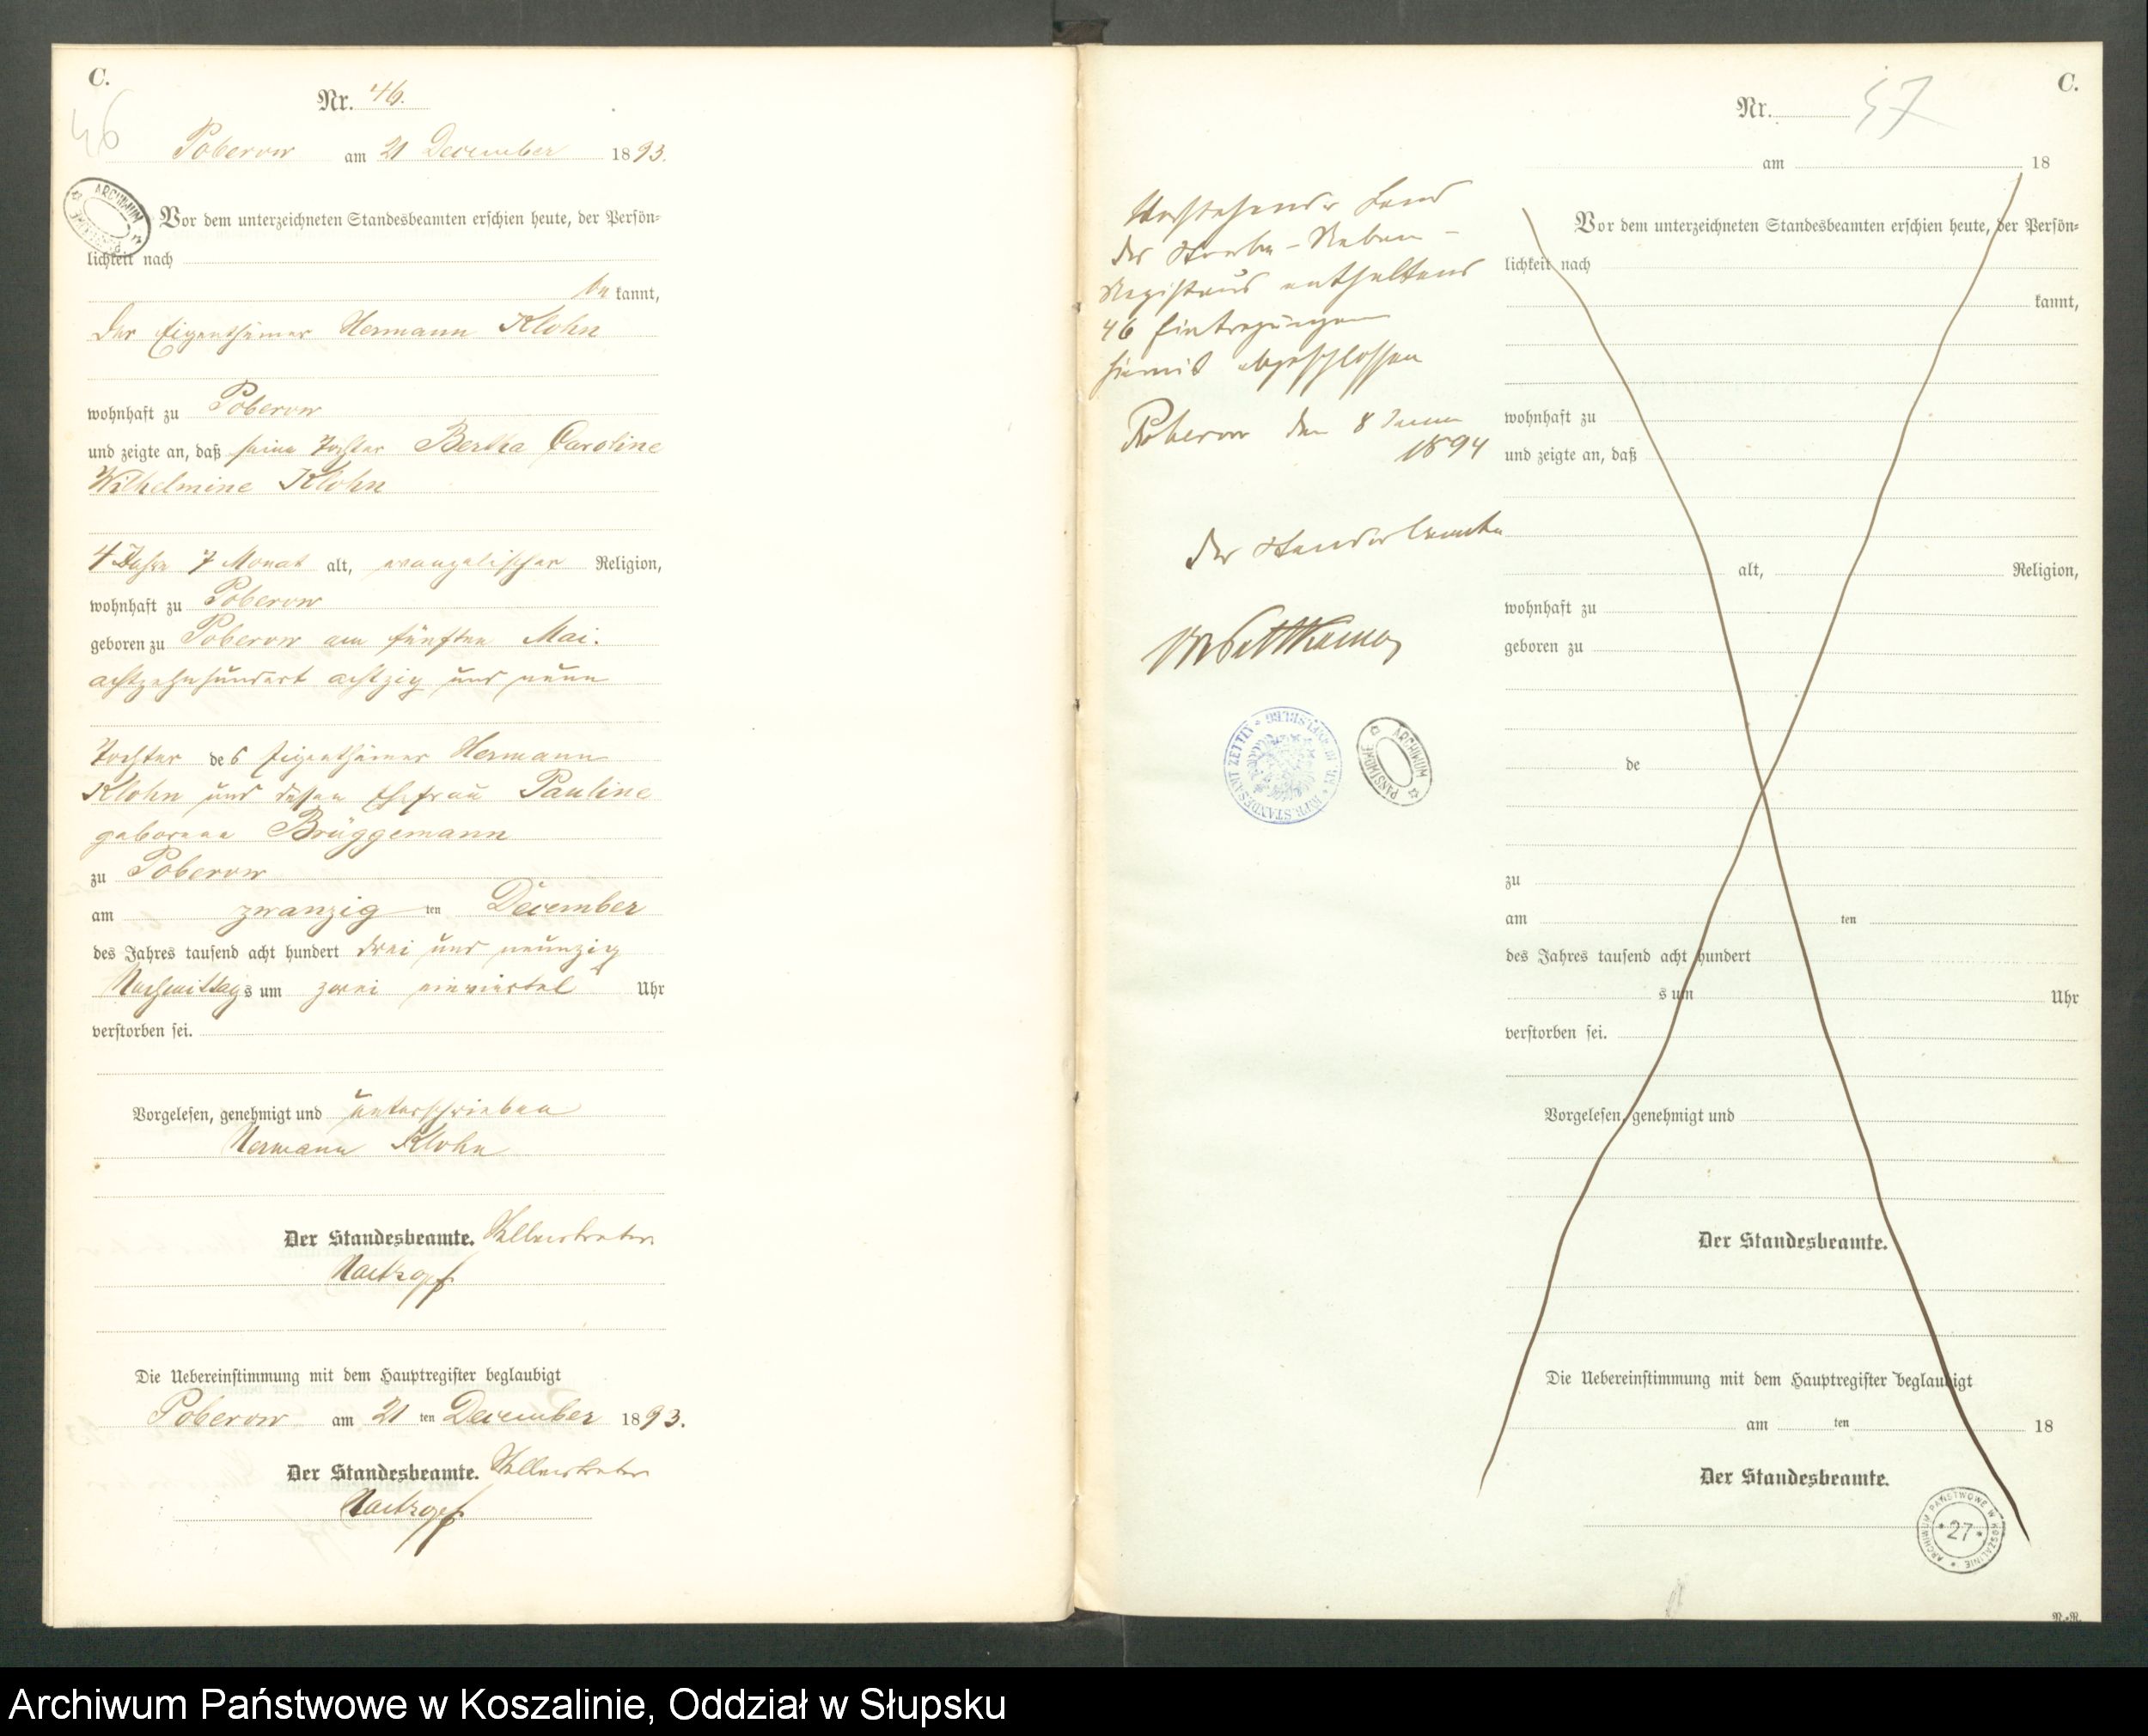 C.
46
Nr. 46.
Poberow am 21 December 1893.
ARCHIWUM PAŃSTWOWE
Vor dem unterzeichneten Standesbeamten erschien heute, der Persön=
lichkeit nach
be kannt,
der Eigenthümer Hermann Klohn
wohnhaft zu Poberow
und zeigte an, daß seine Tochter Bertha Caroline
Wilhelmine Klohn
4 Jahre 7 Monat alt, evangelischer Religion,
wohnhaft zu Poberow
geboren zu Poberow am fünften Mai.
achtzehnhundert achtzig und neun
Tochter des Eigenthümer Hermann
Klohn und dessen Ehefrau Pauline
geborene Brüggemann
zu Poberow
am zwanzig ten December
des Jahres tausend acht hundert drei und neunzig
Nachmittags um zwei einviertel Uhr
verstorben sei.
Vorgelesen, genehmigt und unterschrieben
Hermann Klohn
Der Standesbeamte. Stellvertreter
Die Uebereinstimmung mit dem Hauptregister beglaubigt
Poberow am 21 ten December 1893.
Der Standesbeamte. Stellvertreter
Vorstehender Band
des Sterbe-Neben-
Registers enthaltend
46 Eintragungen
hiermit abgeschlossen
Poberow den 8 Januar
1894
Der Standesbeamte
ARCHIWUM PAŃSTWOWE
C.
Nr. 47
am 18
Vor dem unterzeichneten Standesbeamten erschien heute, der Persön=
lichkeit nach
kannt,
wohnhaft zu
und zeigte an, daß
alt, Religion,
wohnhaft zu
geboren zu
de
zu
am ten
des Jahres tausend acht hundert
s um Uhr
verstorben sei.
Vorgelesen, genehmigt und
Der Standesbeamte.
Die Uebereinstimmung mit dem Hauptregister beglaubigt
am ten 18
Der Standesbeamte.
ARCHIWUM PAŃSTWOWE W KOSZALINIE
27
Archiwum Państwowe w Koszalinie, Oddział w Słupsku